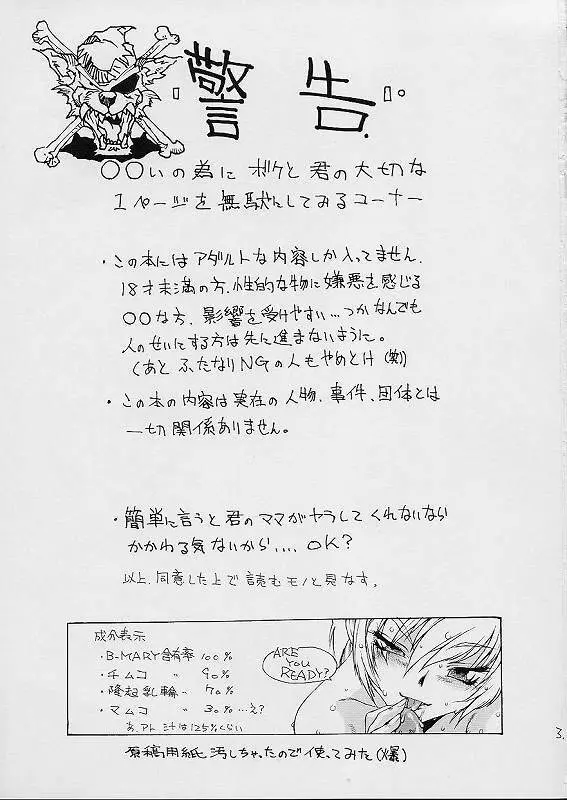 警告。
○○いの為にボケと君の大切な
1ページを無駄にしてみるコーナー
・この本にはアダルトな内容しか入ってません。
18才未満の方、性的な物に嫌悪を感じる
○○な方、影響を受けやすい…つかなんでも
人のせいにする方は先に進まないように。
(あと ふたなりNGの人もやめとけ(笑))
・この本の内容は実在の人物、事件、団体とは
一切関係ありません。
・簡単に言うと君のママがヤらしてくれないなら
かかわる気ないから.... OK?
以上、同意した上で読むモノと見なす。
成分表示
・B-MARY含有率 100%
・チムコ 〃 90%
・隆起乳輪 〃 70%
・マムコ 〃 30% …え?
あ、アト 汁は125%くらい
ARE YOU READY?
原稿用紙汚しちゃったので使ってみた(爆)
3.